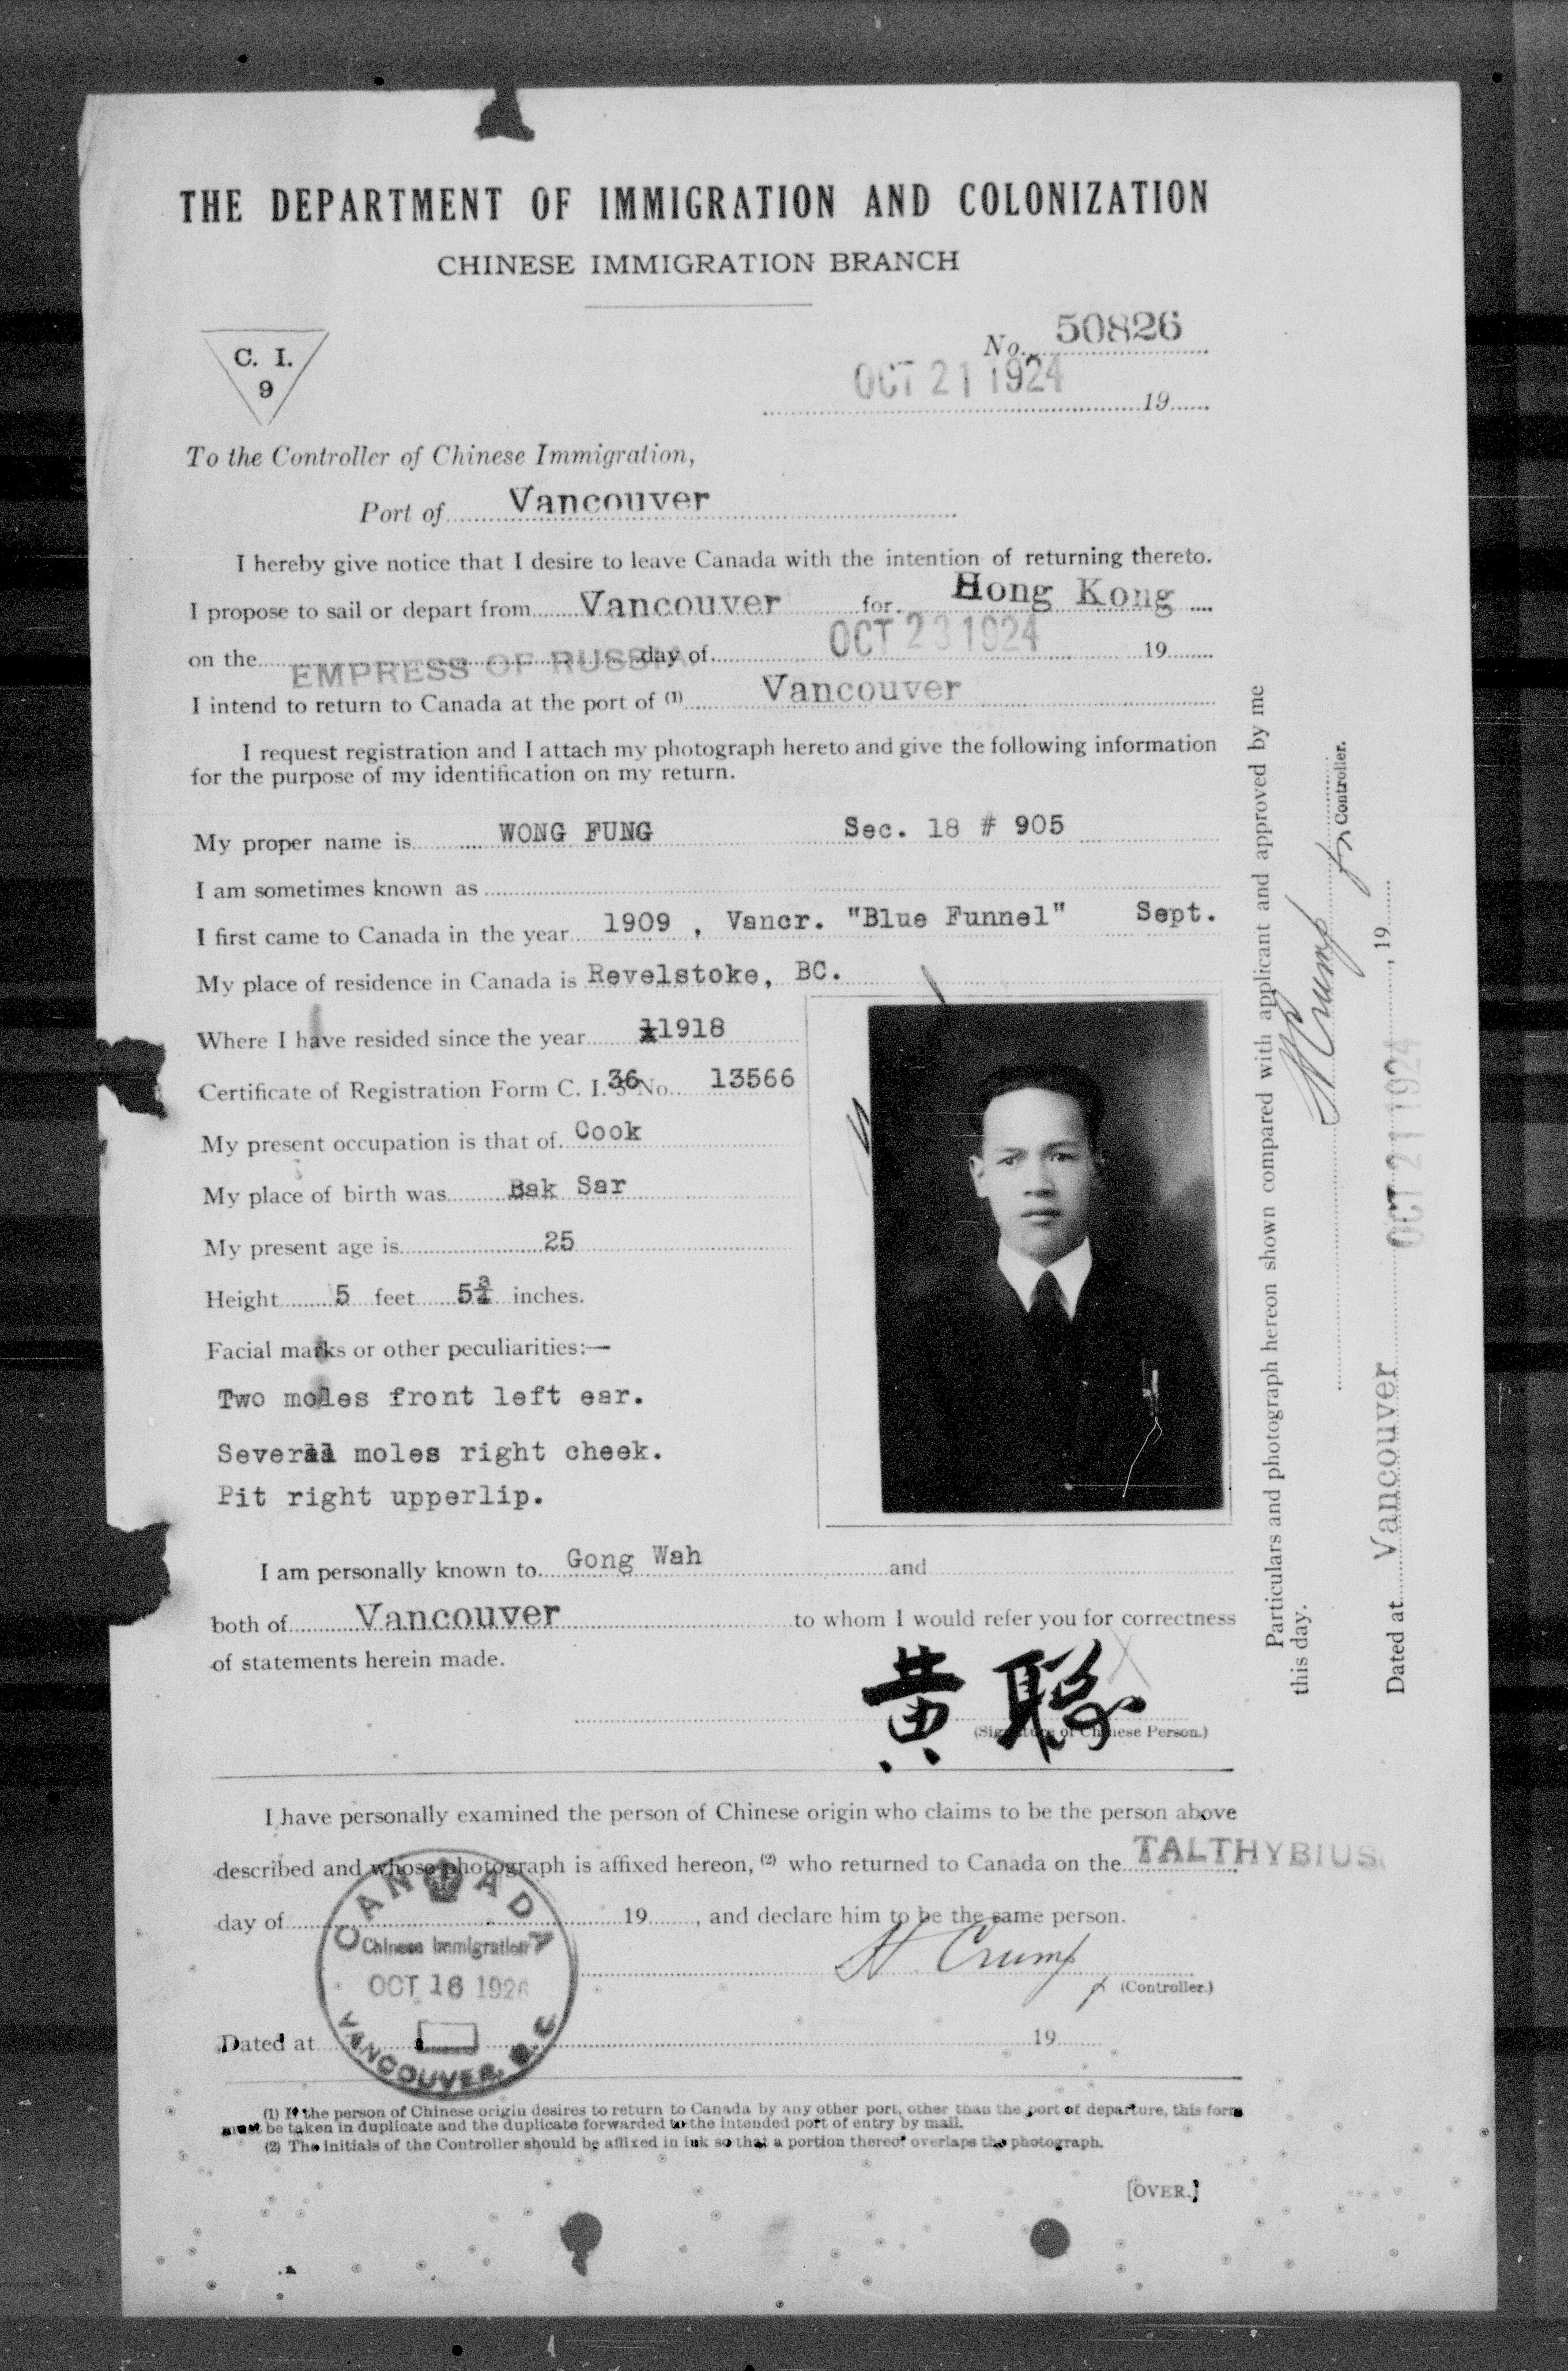 THE DEPARTMENT OF IMMIGRATION AND COLONIZATION
CHINESE IMMIGRATION BRANCH
C. I.
9
No. 50826
OCT 21 1924 19
To the Controller of Chinese Immigration,
Port of Vancouver
I hereby give notice that I desire to leave Canada with the intention of returning thereto.
I propose to sail or depart from Vancouver for Hong Kong
on the EMPRESS OF RUSSIA day of OCT 23 1924 19
I intend to return to Canada at the port of (1) Vancouver
I request registration and I attach my photograph hereto and give the following information
for the purpose of my identification on my return.
My proper name is WONG FUNG Sec. 18 # 905
I am sometimes known as
I first came to Canada in the year 1909 , Vancr. "Blue Funnel" Sept.
My place of residence in Canada is Revelstoke, BC.
Where I have resided since the year 1918
Certificate of Registration Form C. I. 36 No. 13566
My present occupation is that of Cook
My place of birth was Bak Sar
My present age is 25
Height 5 feet 5¾ inches.
Facial marks or other peculiarities:—
Two moles front left ear.
Several moles right cheek.
Pit right upperlip.
I am personally known to Gong Wah and
both of Vancouver to whom I would refer you for correctness
of statements herein made.
黃聡
(Signature of Chinese Person.)
I have personally examined the person of Chinese origin who claims to be the person above
described and whose photograph is affixed hereon, (2) who returned to Canada on the TALTHYBIUS
day of 19 , and declare him to be the same person.
H Crump
(Controller.)
Dated at 19
CANADA
Chinese Immigration
OCT 16 1926
VANCOUVER, B.C
(1) If the person of Chinese origin desires to return to Canada by any other port, other than the port of departure, this form
must be taken in duplicate and the duplicate forwarded to the intended port of entry by mail.
(2) The initials of the Controller should be affixed in ink so that a portion thereof overlaps the photograph.
[OVER.]
Particulars and photograph hereon shown compared with applicant and approved by me
this day.
H Crump for Controller.
Dated at Vancouver OCT 21 1924 , 19